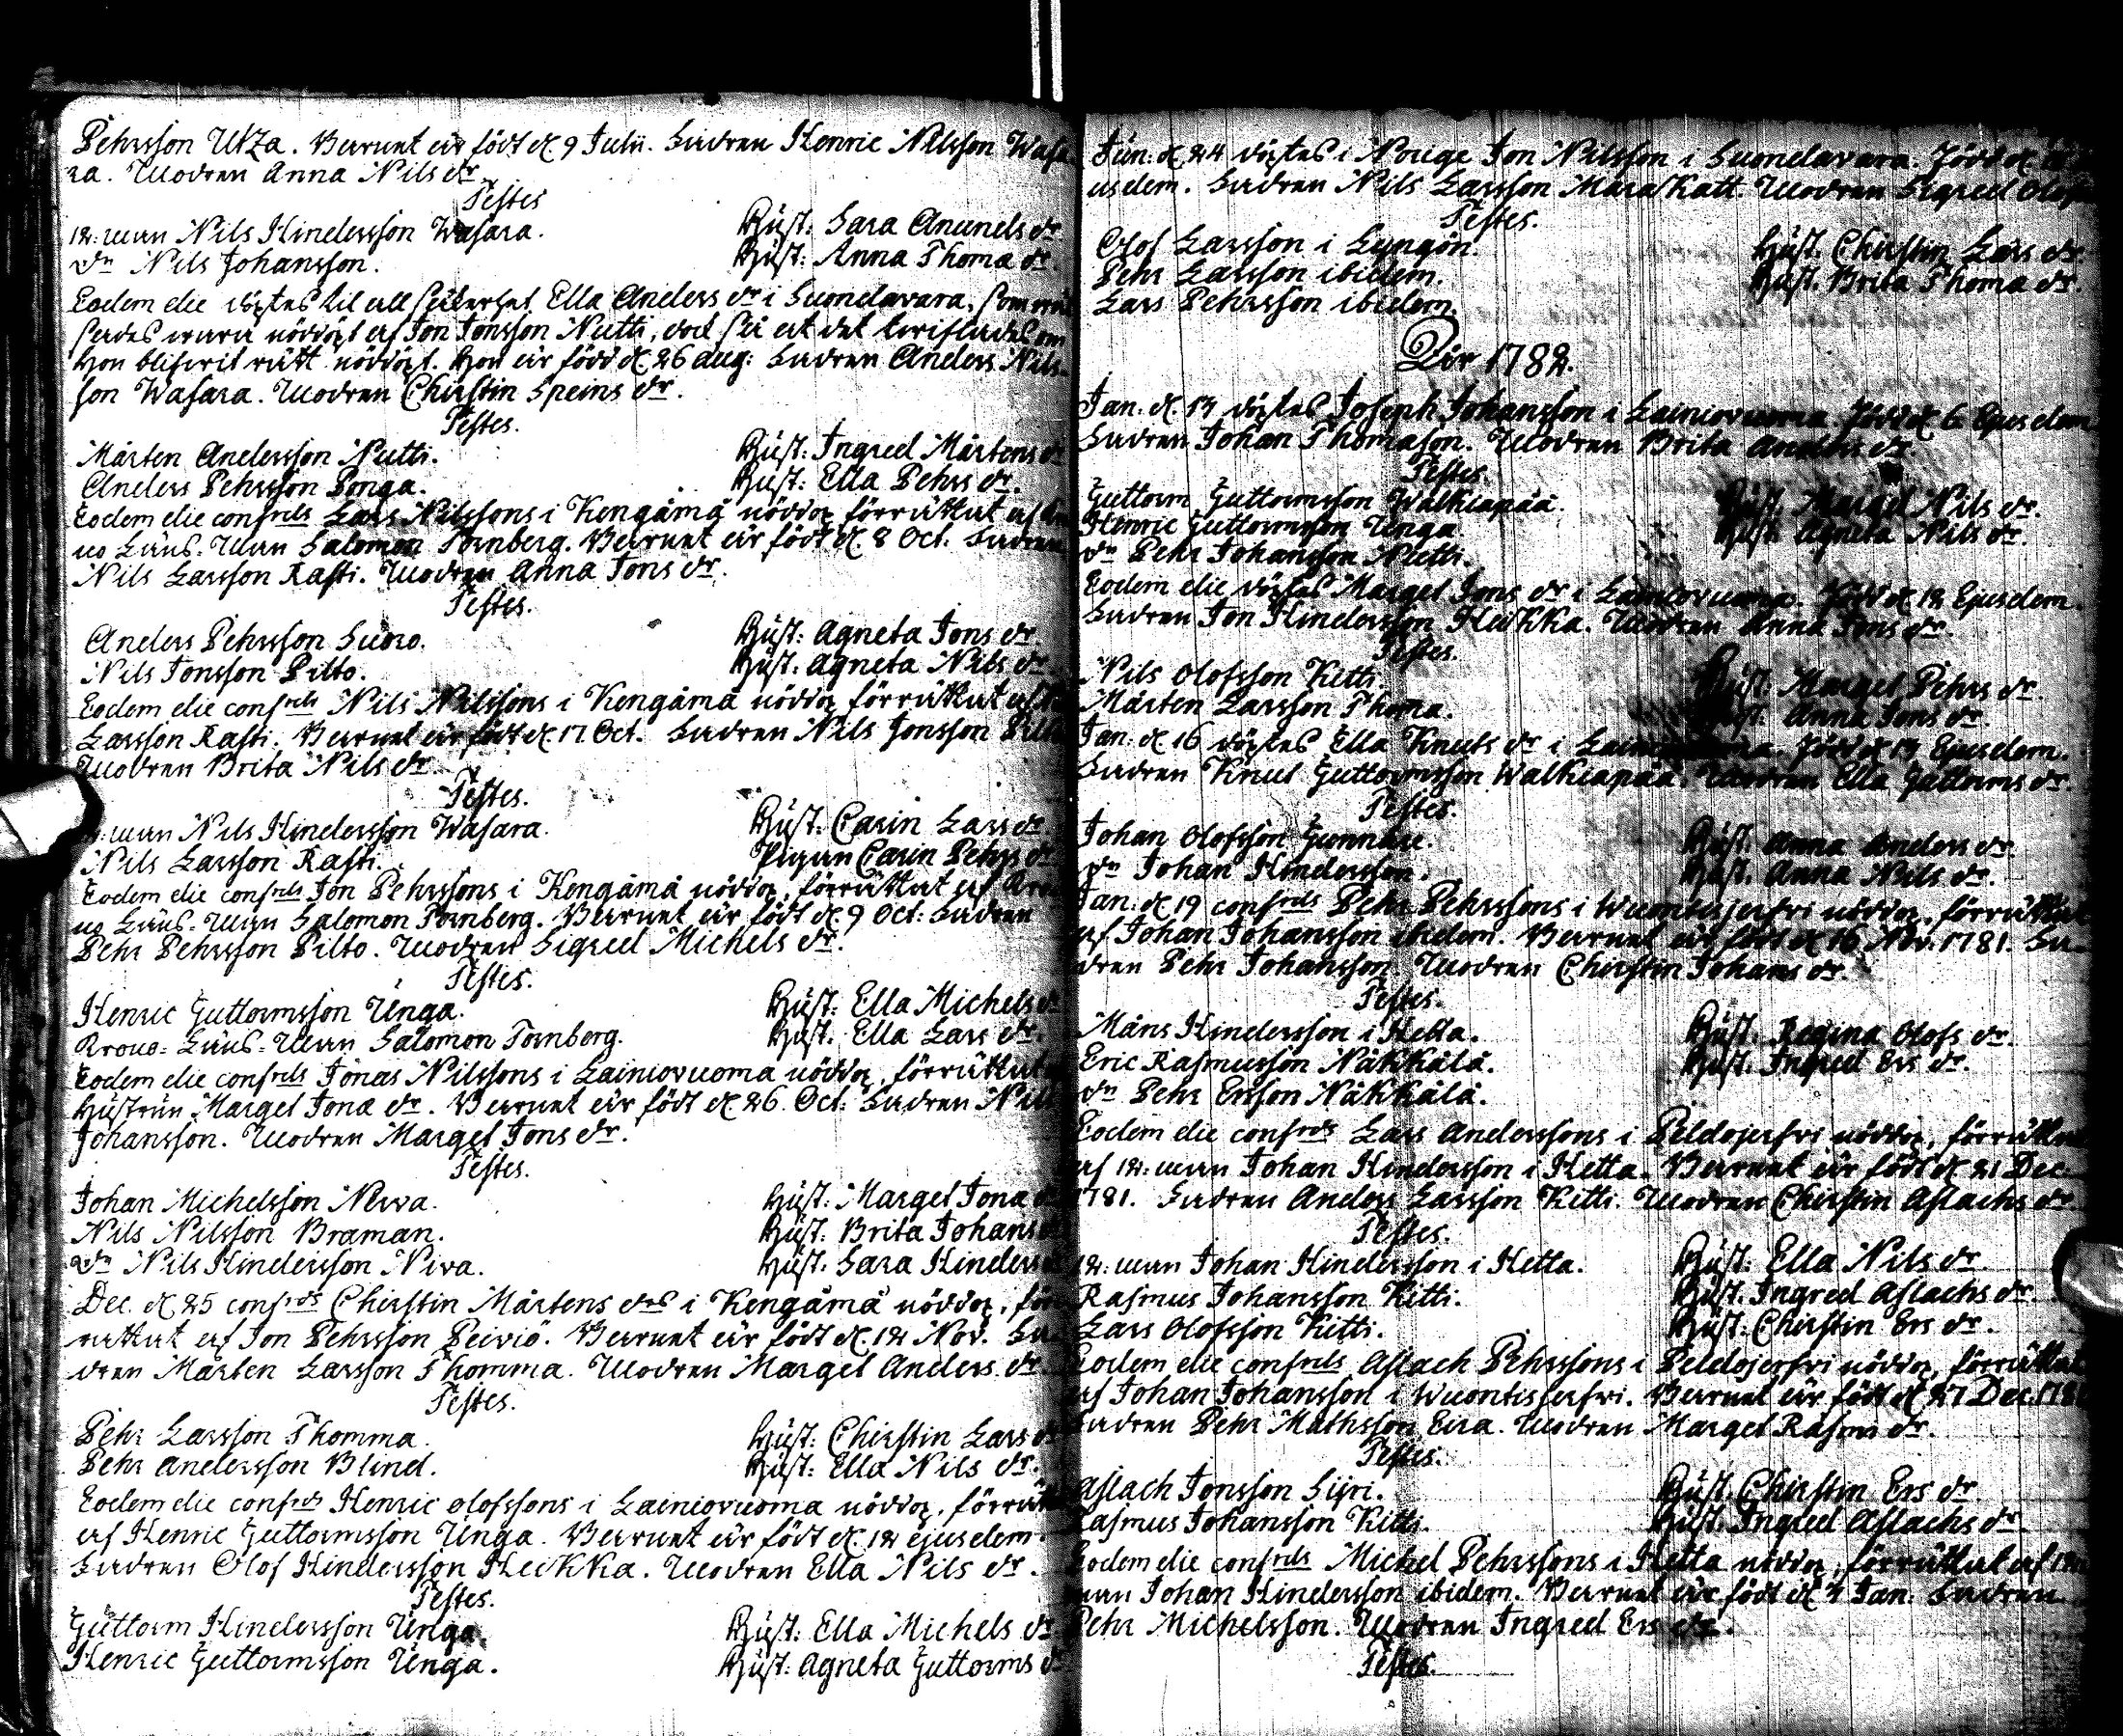 Pehrsson Utza. Barnet är födt d. 9 Julii. Fadren Henric Nilsson Wasa
ra. Modren Anna Nils dr.
Testes
12: man Nils Hindersson Wasara.
Hust: Sara Amunds dr.
dn Nils Johansson.
Hust: Anna Thoma dr.
Eodem die döptes til all säkerhet Ella Anders dr i Suondavara, som
sades wara nöddöpt af Jon Jonsson Nutti, dock så at det twiflades om
hon blifwit rätt nöddöpt. Hon är född d. 26 aug: Fadren Anders Nils-
son Wasara. Modren Chirstin Speins dr.
Testes.
Mårten Andersson Nutti.
Hust: Ingred Mårtens dr
Anders Pehrsson Ponga.
Hust: Ella Pehrs dr.
Eodem die confrds Lars Nilssons i Kengämä nöddop förrättat af
no Läns-Man Salomon Tornberg. Barnet är födt d. 8 Oct. Fadren
Nils Larsson Rasti. Modren Anna Jons dr.
Testes.
Anders Pehrsson Suoro.
Hust: Agneta Jons dr.
Nils Jonsson Pilto.
Hust: Agneta Nils dr.
Eodem die confrds Nils Nilssons i Kengämä nöddop förrättat af
Larsson Rasti. Barnet är födt d. 17 Oct. Fadren Nils Jonsson Pilto
Modren Brita Nils dr.
Testes.
man Nils Hindersson Wasara.
Hust: Carin Lars dr.
Nils Larsson Rasti.
Pigan Carin Pehrs dr
Eodem die confrds Jon Pehrssons i Kengämä nöddop, förrättat af Kro
no Läns-Man Salomon Tornberg. Barnet är födt d. 9 Oct: Fadren
Pehr Pehrsson Pilto. Modren Sigred Michels dr.
Testes.
Henric Guttormsson Unga.
Hust: Ella Michels dr
Krono-Läns-Man Salomon Tornberg.
Hust: Ella Lars dr.
Eodem die confrds Jonas Nilssons i Lainiovuoma nöddop, förrättat
Hustrun Marget Jona dr. Barnet är födt d. 26 Oct: Fadren Nils
Johansson. Modren Marget Jons dr.
Testes.
Johan Michelsson Newa.
Hust: Marget Jona dr
Nils Nilsson Braman.
Hust: Brita Johans
dn Nils Hindersson Niva.
Hust: Sara Hinders
Dec. d. 25 confrds Chirstin Mårtens drs i Kengämä nöddop, för
rättat af Jon Pehrsson Peivio. Barnet är födt d. 12 Nov. Fa
dren Mårten Larsson Thomma. Modren Marget Anders dr
Testes.
Pehr Larsson Thomma.
Hust: Chirstin Lars dr
Pehr Andersson Blind.
Hust: Ella Nils dr.
Eodem die confrds Henric Olofssons i Lainiovuoma nöddop, förrät
af Henric Guttormsson Unga. Barnet är födt d. 12 ejusdem.
Fadren Olof Hindersson Heikka. Modren Ella Nils dr.
Testes.
Guttorm Hindersson Unga.
Hust: Ella Michels dr
Henric Guttormsson Unga.
Hust: Agneta Guttorms dr
Jun: d. 24 döptes i Norige Jon Nilsson i Suondavara. Född d.
usdem. Fadren Nils Larsson Marakatt. Modren Sigred Olofs
Testes.
Olof Larsson i Lyngön.
Hust. Chirstin Lars dr.
Pehr Larsson ibidem.
Hust. Brita Thoma dr.
Lars Pehrsson ibidem.
År 1782.
Jan: d. 13 döptes Joseph Johansson i Lainiovuoma. Född d. 6 Ejusdem.
Fadren Johan Thomason. Modren Brita Anders dr.
Testes.
Guttorm Guttormsson Walkiapää.
Hust. Marget Nils dr.
Henric Guttormsson Unga.
Hust. Agneta Nils dr.
dn Pehr Johansson Nutti.
Eodem die döptes Marget Jons dr i Lainiovuoma. Född d. 12 Ejusdem.
Fadren Jon Hindersson Heikka. Modren Anna Jons dr.
Testes.
Nils Olofsson Kitti.
Hust: Marget Pehrs dr.
Mårten Larsson Thoma.
Hust: Anna Jons dr.
Jan: d. 16 döptes Ella Knuts dr i Lainiovuoma. Född d. 13 Ejusdem.
Fadren Knut Guttormsson Walkiapää. Modren Ella Guttorms dr.
Testes.
Johan Olofsson Gunnare.
Hust. Anna Anders dr.
dn Johan Hindersson.
Hust. Anna Nils dr.
Jan: d. 19 confrds Pehr Pehrssons i Wuontisjerfvi nöddop, förrättat
af Johan Johansson ibidem. Barnet är födt d. 16 Nov. 1781. Fa-
dren Pehr Johansson. Modren Chirstin Johans dr.
Testes.
Måns Hindersson i Hetta.
Hust: Regina Olofs dr.
Eric Rasmusson Näkkälä.
Hust: Ingred Ers dr.
dn Pehr Ersson Näkkälä.
Eodem die confrds Lars Anderssons i Peldojerfvi nöddop, förrättat
af 12: man Johan Hindersson i Hetta. Barnet är födt d. 21 Dec.
1781. Fadren Anders Larsson Kitti. Modren Chirstin Aslachs dr.
Testes.
12: man Johan Hindersson i Hetta.
Hust: Ella Nils dr.
Rasmus Johansson Kitti.
Hust. Ingred Aslachs dr.
Lars Olofsson Kitti.
Hust: Chirstin Ers dr.
Eodem die confrds Aslach Pehrssons i Peldojerfvi nöddop, förrättat
af Johan Johansson i Wuontisjerfvi. Barnet är födt d. 27 Dec. 1781
Fadren Pehr Mathsson Eira. Modren Marget Rasm dr.
Testes.
Aslach Jonsson Siiri.
Hust. Chirstin Ers dr.
Rasmus Johansson Kitti.
Hust. Ingred Aslachs dr.
Eodem die confrds Michel Pehrssons i Hetta nöddop, förrättat af 12:
man Johan Hindersson ibidem. Barnet är födt d. 4 Jan: Fadren
Pehr Michelsson. Modren Ingred Ers dr.
Testes.